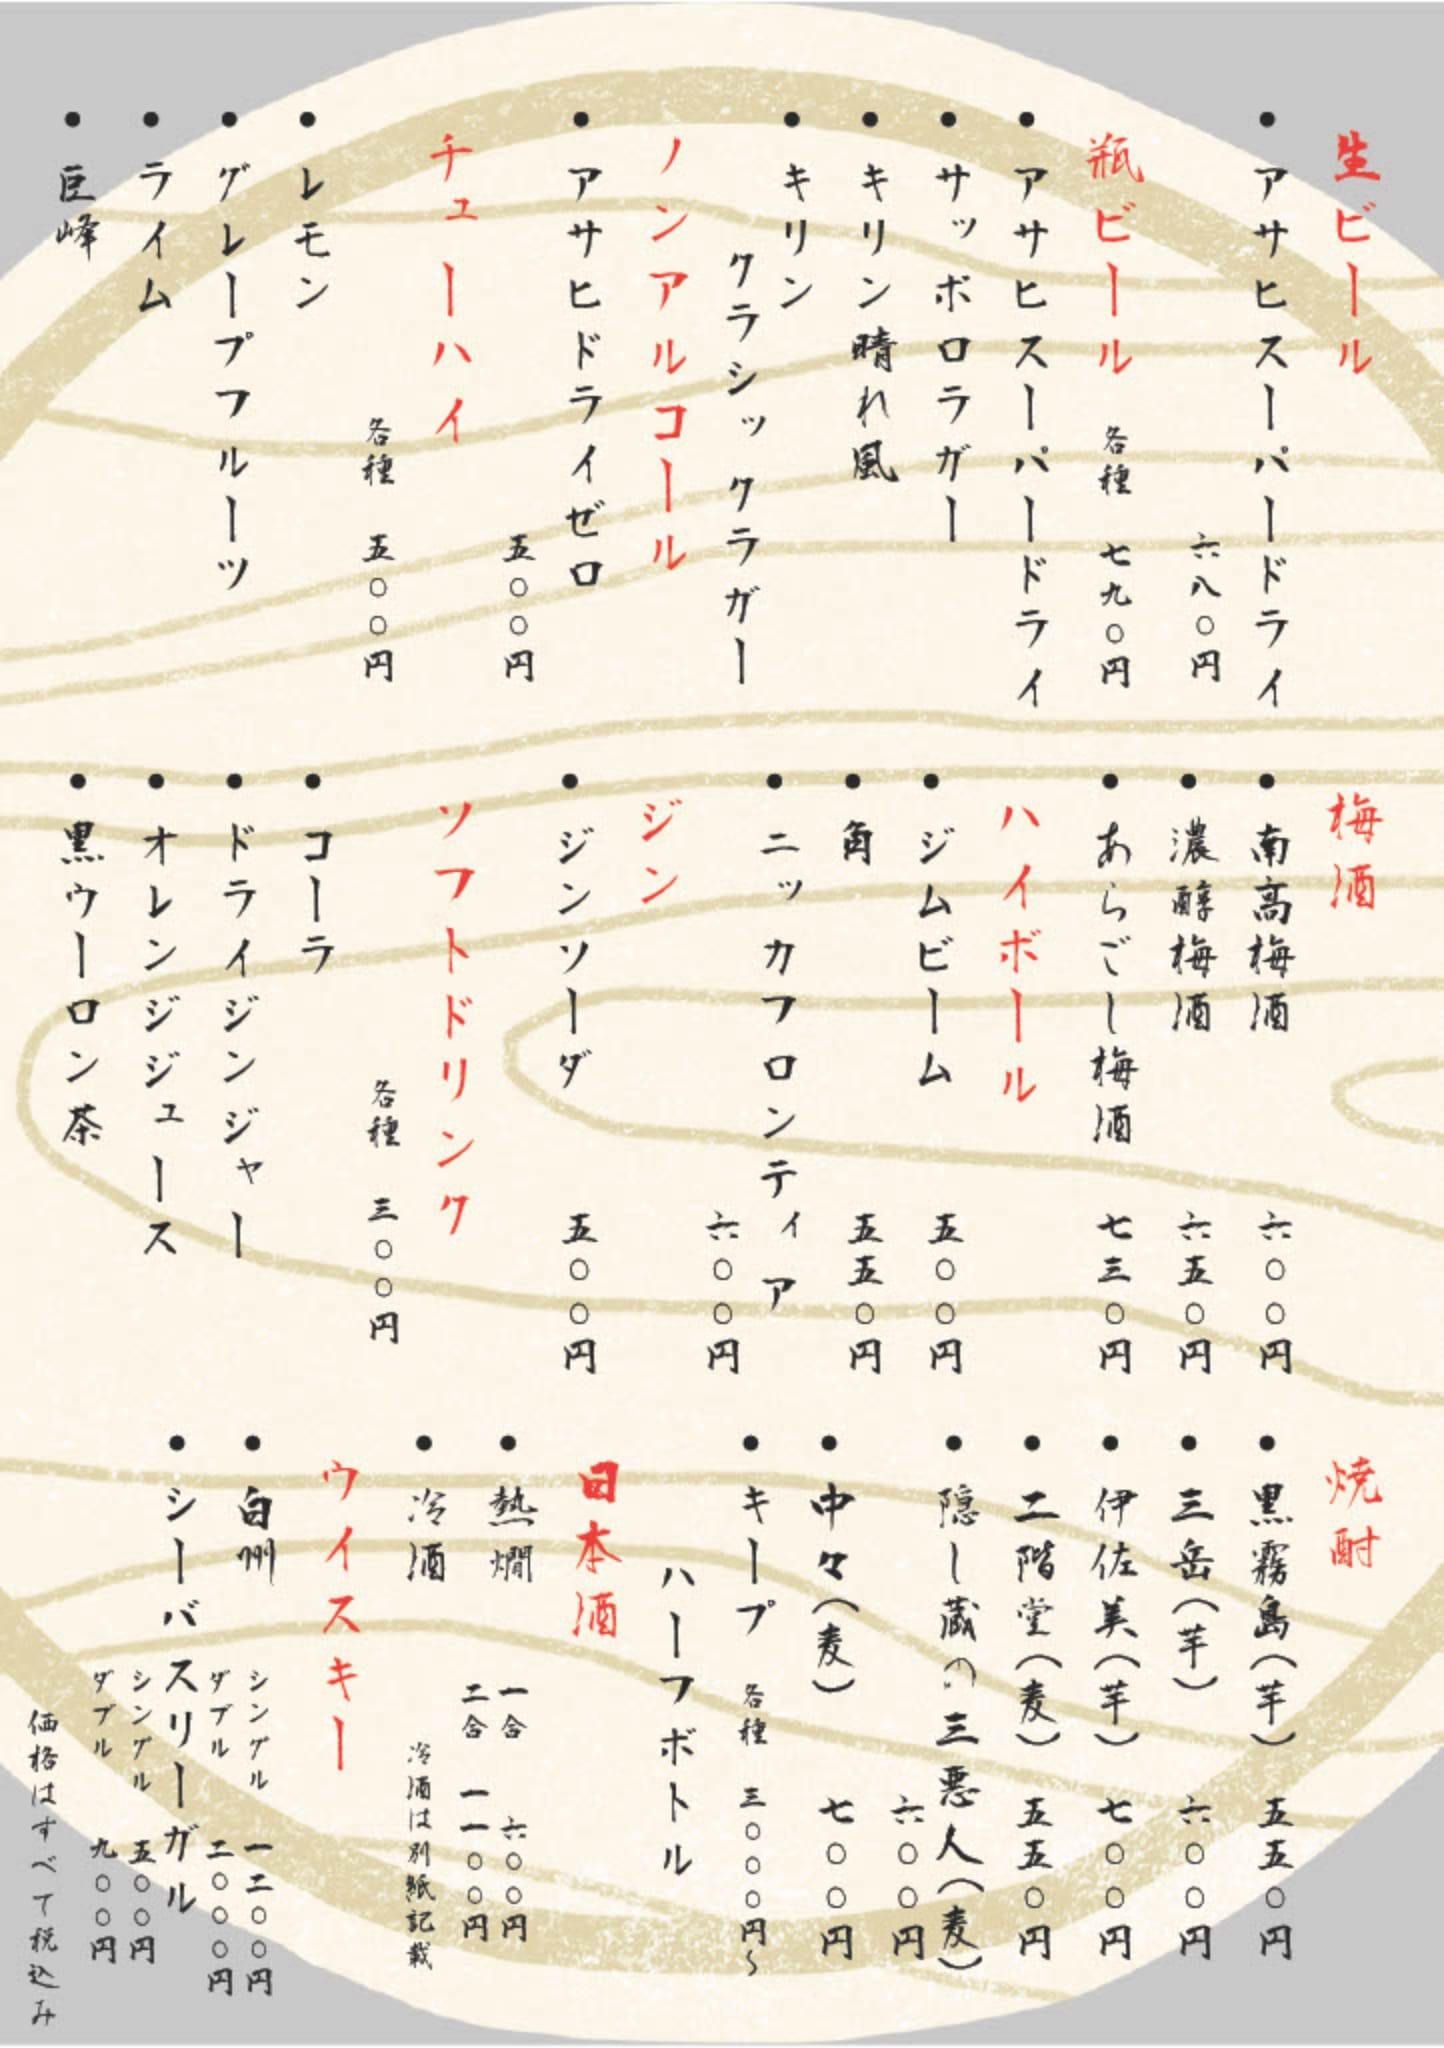 生ビール
・アサヒスーパードライ
六八〇円
瓶ビール
各種 七九〇円
・アサヒスーパードライ
・サッポロラガー
・キリン晴れ風
・キリン
クラシックラガー
ノンアルコール
・アサヒドライゼロ
五〇〇円
チューハイ
各種 五〇〇円
・レモン
・グレープフルーツ
・ライム
・巨峰
梅酒
・南高梅酒 六〇〇円
・濃醇梅酒 六五〇円
・あらごし梅酒 七三〇円
ハイボール
・ジムビーム 五〇〇円
・角 五五〇円
・ニッカフロンティア
六〇〇円
ジン
・ジンソーダ 五〇〇円
ソフトドリンク
各種 三〇〇円
・コーラ
・ドライジンジャー
・オレンジジュース
・黒ウーロン茶
焼酎
・黒霧島(芋) 五五〇円
・三岳(芋) 六〇〇円
・伊佐美(芋) 七〇〇円
・二階堂(麦) 五五〇円
・隠し蔵の三悪人(麦)
六〇〇円
・中々(麦) 七〇〇円
・キープ 各種 三〇〇〇円〜
ハーフボトル
日本酒
・熱燗 一合 六〇〇円
二合 一一〇〇円
・冷酒 冷酒は別紙記載
ウイスキー
・白州 シングル 一二〇〇円
ダブル 二〇〇〇円
・シーバスリーガル
シングル 五〇〇円
ダブル 九〇〇円
価格はすべて税込み